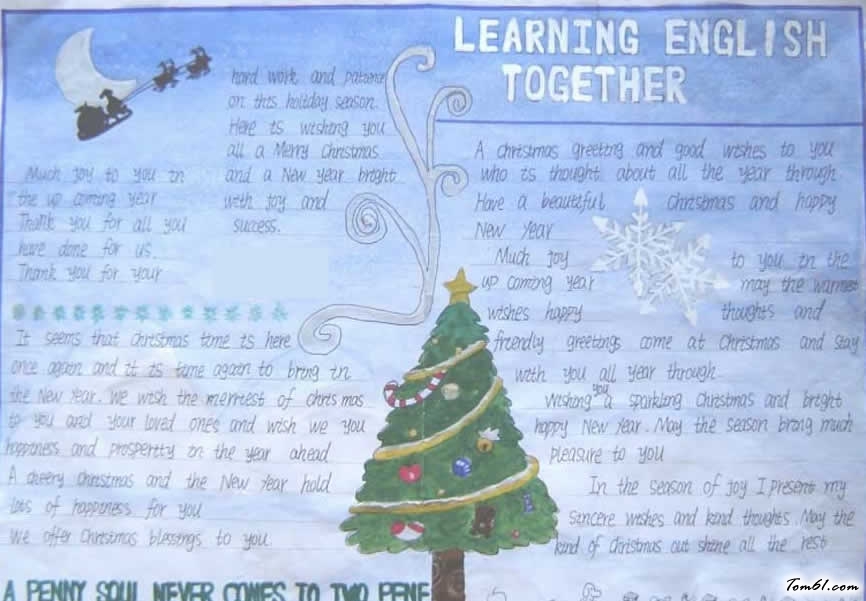 LEARNING ENGLISH
TOGETHER
Much joy to you in
the up coming year
Thank you for all you
have done for us.
Thank you for your
hard work and patience
on this holiday season.
Here is wishing you
all a Merry Christmas
and a New Year bright
with joy and
success.
It seems that christmas time is here
once again and it is time again to bring in
the New Year. We wish the merriest of christmas
to you and your loved ones and wish we you
happiness and prosperity in the year ahead
A cheery Christmas and the New Year hold
lots of happiness for you
We offer Christmas blessings to you.
A christmas greeting and good wishes to you
who is thought about all the year through
Have a beautiful Christmas and happy
New Year
Much joy to you in the
up coming year may the warmest
wishes happy thoughts and
friendly greetings come at Christmas and stay
with you all year through
Wishing you a sparkling Christmas and bright
happy New Year. May the season bring much
pleasure to you
In the season of joy I present my
sincere wishes and kind thoughts. May the
kind of Christmas out shine all the rest
A PENNY SOUL NEVER COMES TO TWO PENE
Tom61.com